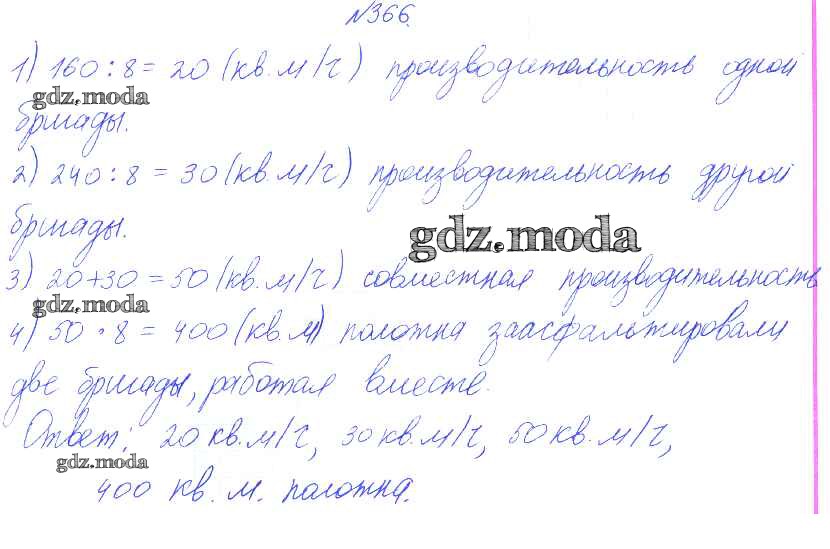 №366.
1) 160 : 8 = 20 (кв.м/ч) производительность одной
gdz.moda
бригады.
2) 240 : 8 = 30 (кв.м/ч) производительность другой
бригады.
gdz.moda
3) 20+30 = 50 (кв.м/ч) совместная производительность
gdz.moda
4) 50 · 8 = 400 (кв.м) полотна заасфальтировали
две бригады, работая вместе.
Ответ: 20 кв.м/ч, 30 кв.м/ч, 50 кв.м/ч,
gdz.moda
400 кв. м. полотна.